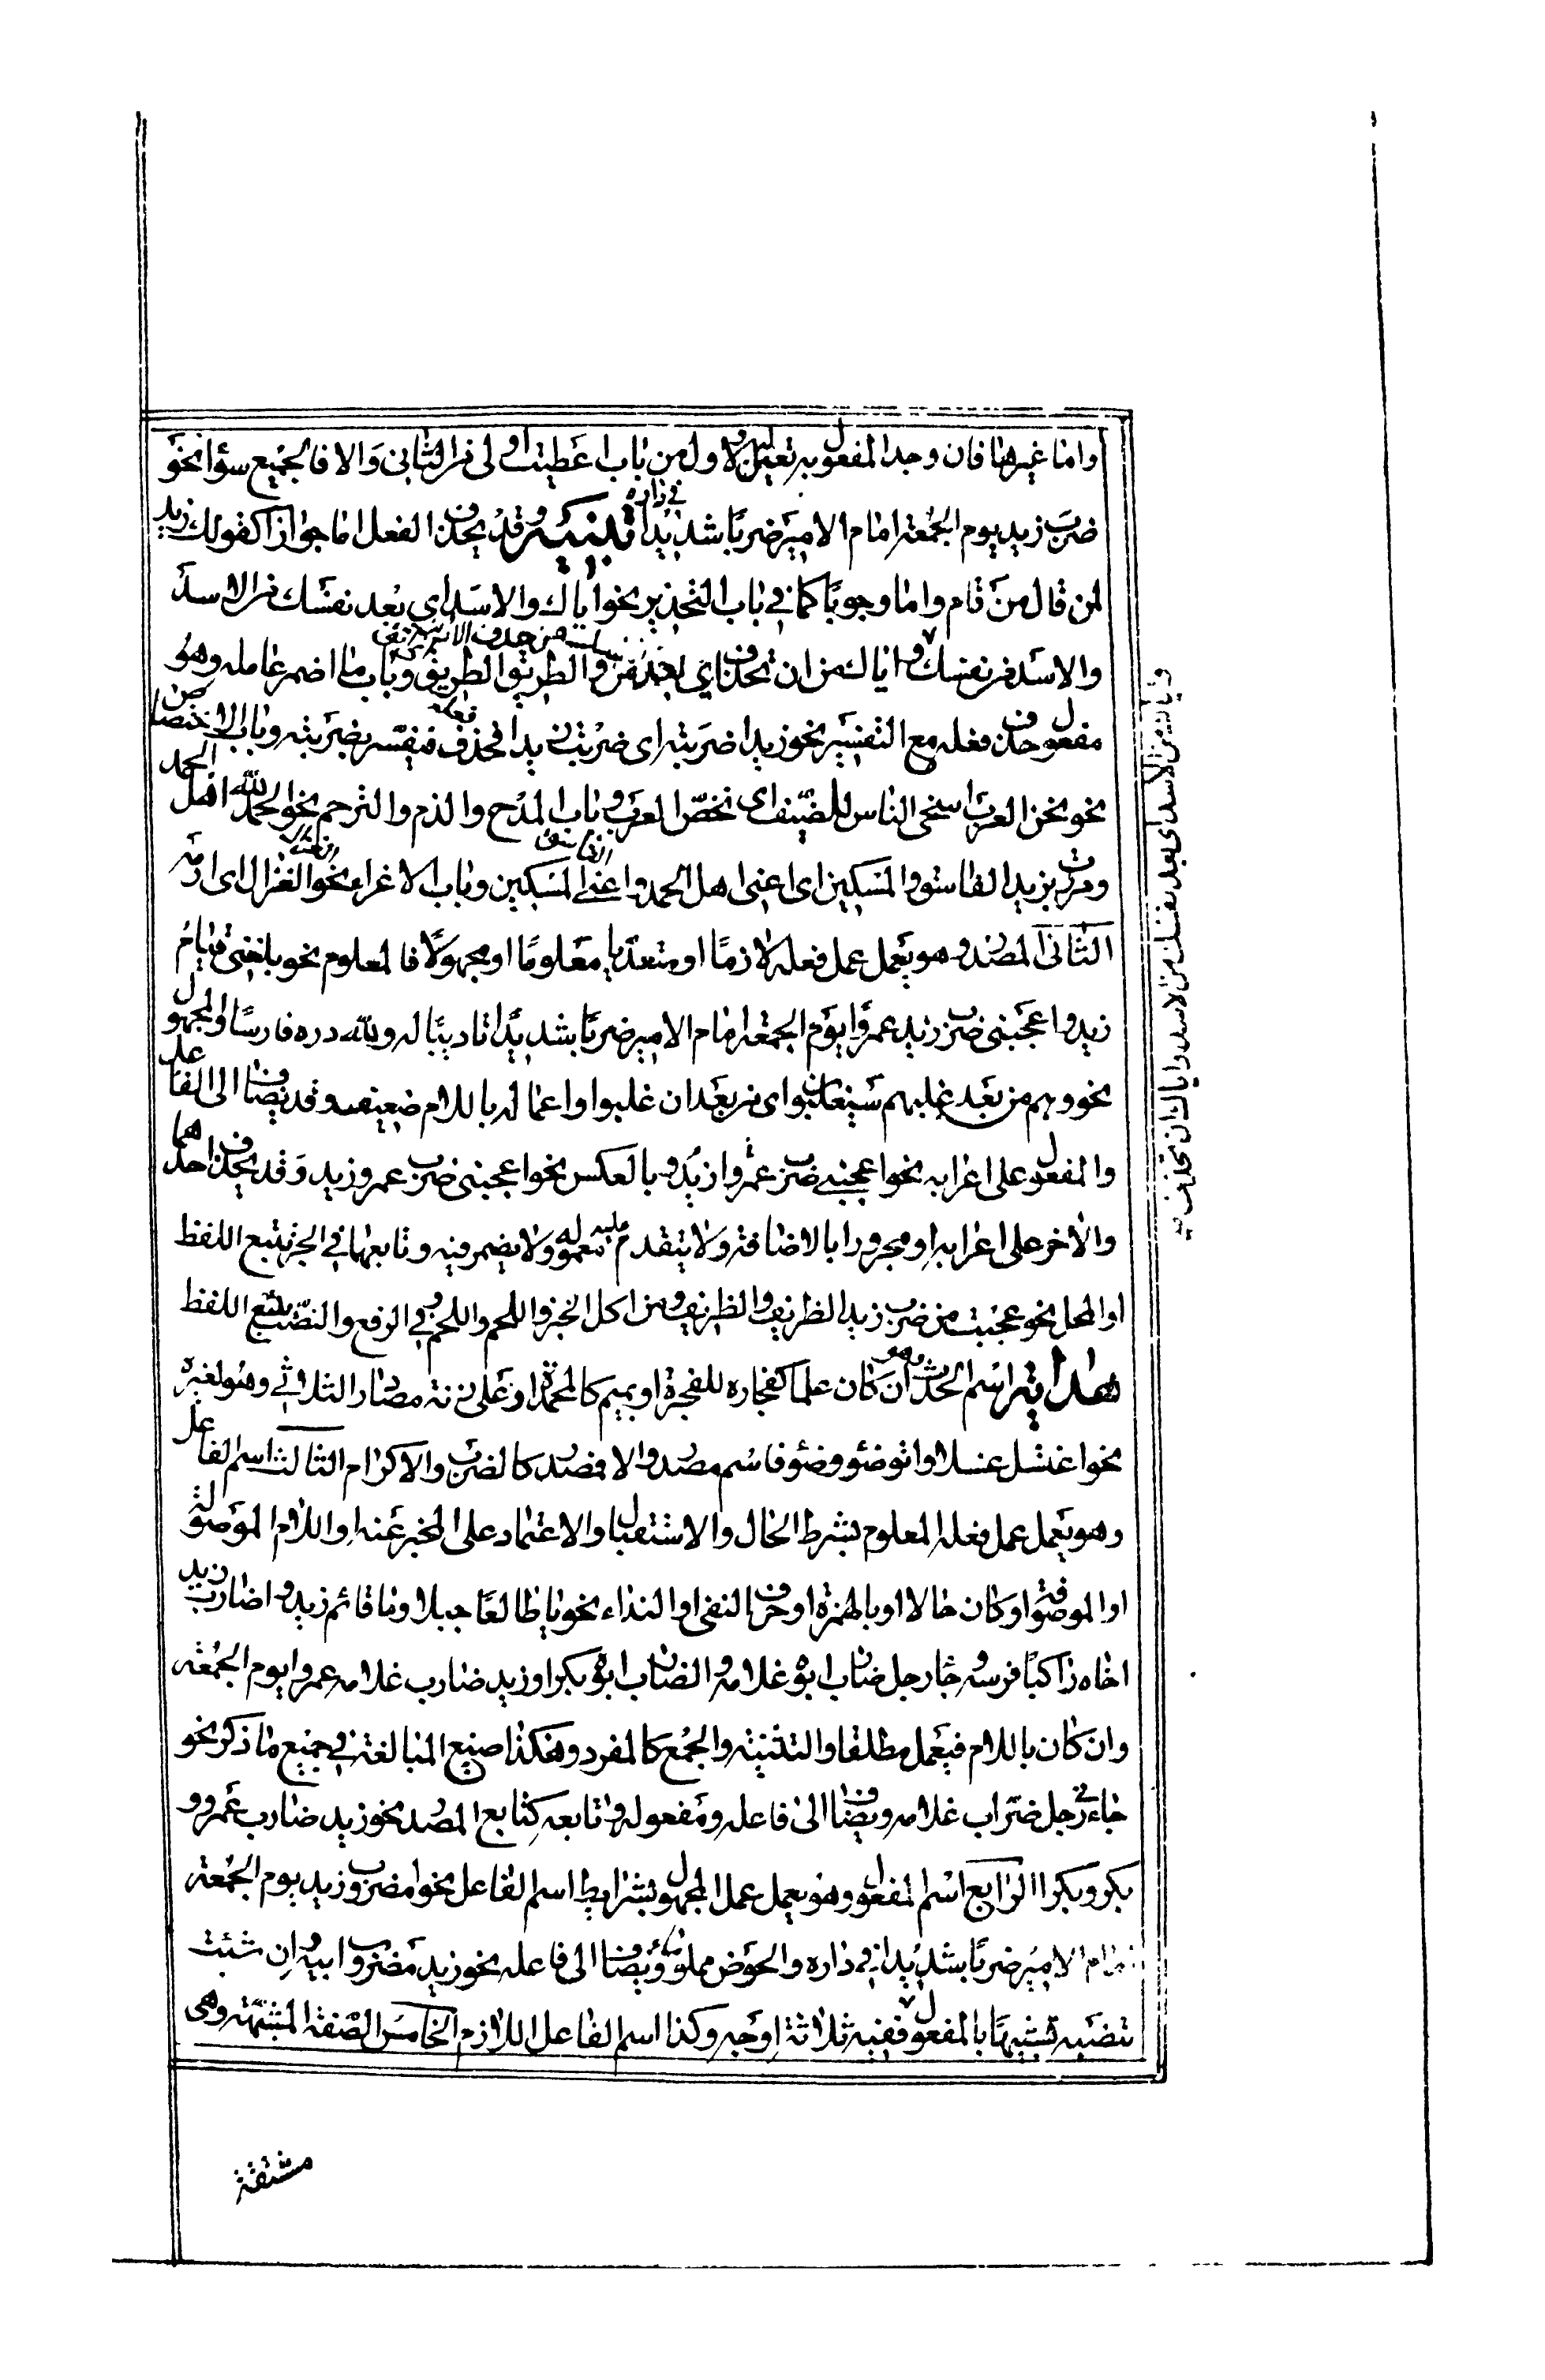 واما غيرها فان وجد المفعول به تعين له والاول من باب اعطيت اولى من الثاني والا فالجميع سواء نحو
ضرب زيد يوم الجمعة امام الامير ضربا شديدا في داره تنبيه وقد يحذف الفعل اما جوازا كقولك زيد
لمن قال من قام واما وجوبا كما في باب التحذير نحو اياك والاسد اي بعد نفسك من الاسد
والاسد من نفسك واياك من ان تحذف اي بعد والطريق الطريق وباب ما اضمر عامله وهو
مفعول حذف فعله مع التفسير نحو زيدا ضربته اى ضربت زيدا فحذف فعله فيفسر بضربته وباب الاختصاص
نحو نحن العرب اسخى الناس للضيف اى نخص العرب وباب المدح والذم والترحم نحو الحمد لله اهل الحمد
ومررت بزيد الفاسق والمسكين اى اعنى اهل الحمد واعنى الفاسق المسكين وباب الاغراء نحو الغزال الغزال اى ارمه
الثانى المصدر وهو يعمل عمل فعله لازما او متعديا معلوما او مجهولا فالمعلوم نحو بلغنى قيام
زيد واعجبنى ضرب زيد عمروا يوم الجمعة امام الامير ضربا شديدا تاديبا له ولله دره فارسا والمجهول
نحو وهم من بعد غلبهم سيغلبون اى من بعد ان غلبوا واعماله باللام ضعيف وقد يضاف الى الفاعل
والمفعول على اعرابه نحو اعجبنى ضرب عمروا زيد وبالعكس نحو اعجبنى ضرب عمرو زيد وقد يحذف احدهما
والاخر على اعرابه او مجرورا بالاضافة ولا يتقدم معموله عليه ولا يضمر فيه وتابعهما في الجر يتبع اللفظ
او المحل نحو عجبت من ضرب زيد الظريف والظريف ومن اكل الخبز واللحم واللحم وفي الرفع والنصب يتبع اللفظ
هداية اسم الحدث وهو ان كان علما كفجاره للفجرة او بميم كالمحمدة او على زنة مصدر الثلاثي وهو لغيره
نحو اغتسل غسلا وتوضؤ وضوء فاسم مصدر والا فمصدر كالضرب والاكرام الثالث اسم الفاعل
وهو يعمل عمل فعله المعلوم بشرط الحال والاستقبال والاعتماد على المخبر عنه او اللام الموصولة
او الموصوف او كان حالا او بالهمزة او حرف النفى او النداء نحو يا طالعا جبلا وما قائم زيد واضارب زيد
اخاه راكبا فرسه وجاء رجل ضارب ابوه غلامه والضارب ابوه بكرا وزيد ضارب غلامه عمروا يوم الجمعة
وان كان باللام فيعمل مطلقا والتثنية والجمع كالمفرد وهكذا صيغ المبالغة في جميع ما ذكر نحو
جاءنى رجل ضراب غلامه ويضاف الى فاعله ومفعوله وتابعه كتابع المصدر نحو زيد ضارب عمرو و
بكر وبكرا الرابع اسم المفعول وهو يعمل عمل المجهول بشرايط اسم الفاعل نحو امضروب زيد يوم الجمعة
امام الامير ضربا شديدا في داره والحوض مملو ماء ويضاف الى فاعله نحو زيد مضروب ابيه وان شئت
تنصبه تشبيها بالمفعول ففيه ثلاثة اوجه وكذا اسم الفاعل اللازم الخامس الصفة المشبهة وهى
مشتقة
واياك من الاسد اى بعد نفسك من الاسد واياك ان تحذف